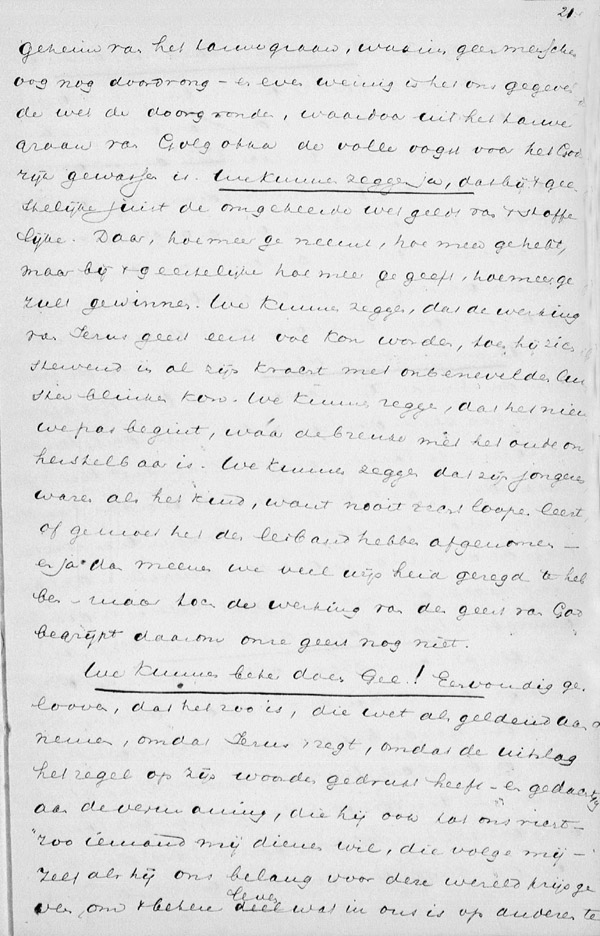 21
geheim van het tarwegraan, waarin geen menschen
oog nog doordrong - en even weinig is het ons gegeven
de wet de doorgronden, waardoor uit het tarwe
graan van Golgotha de volle oogst voor het God
rijk gewassen is. We kunnen zeggen ja, dat bij 't gee
stelijke juist de omgekeerde wet geldt van 't stoffe
lijke. Daar, hoe meer ge neemt, hoe meer ge hebt,
maar bij 't geestelijke hoe meer ge geeft, hoe meer ge
zult gewinnen. We kunnen zeggen, dat de werking
van Jezus geest eerst vol kon worden, toen hij zien
stervend in al zijn kracht met onbenevelden lui
ster blinken kon. We kunnen zegge, dat het nieu
we pas begint, waar de breuke met het oude on
herstelbaar is. We kunnen zeggen dat zijn jongeren
waren als het kind, want nooit zoont loopen leert
of ge moet het den leiband hebben afgenomen -
en ja dan meenen we veel wijsheid gezegd te heb
ben - maar toch de werking van den geest van God
begrijpt daarom onze geest nog niet.
We kunnen beter doen Gel.! Eenvoudig ge
looven, dat het zoo is, die wet als geldend aan
nemen, omdat Jezus 't zegt, omdat de uitslag
het zegel op zijn woorden gedrukt heeft - en gedachtig
aan de vermaning, die hij ook tot ons richt -
"zoo iemand mij dienen wil, die volge mij -
zelf als hij ons belang voor deze wereld prijs ge
ven, om 't betere leven deel wat in ons is op anderen te